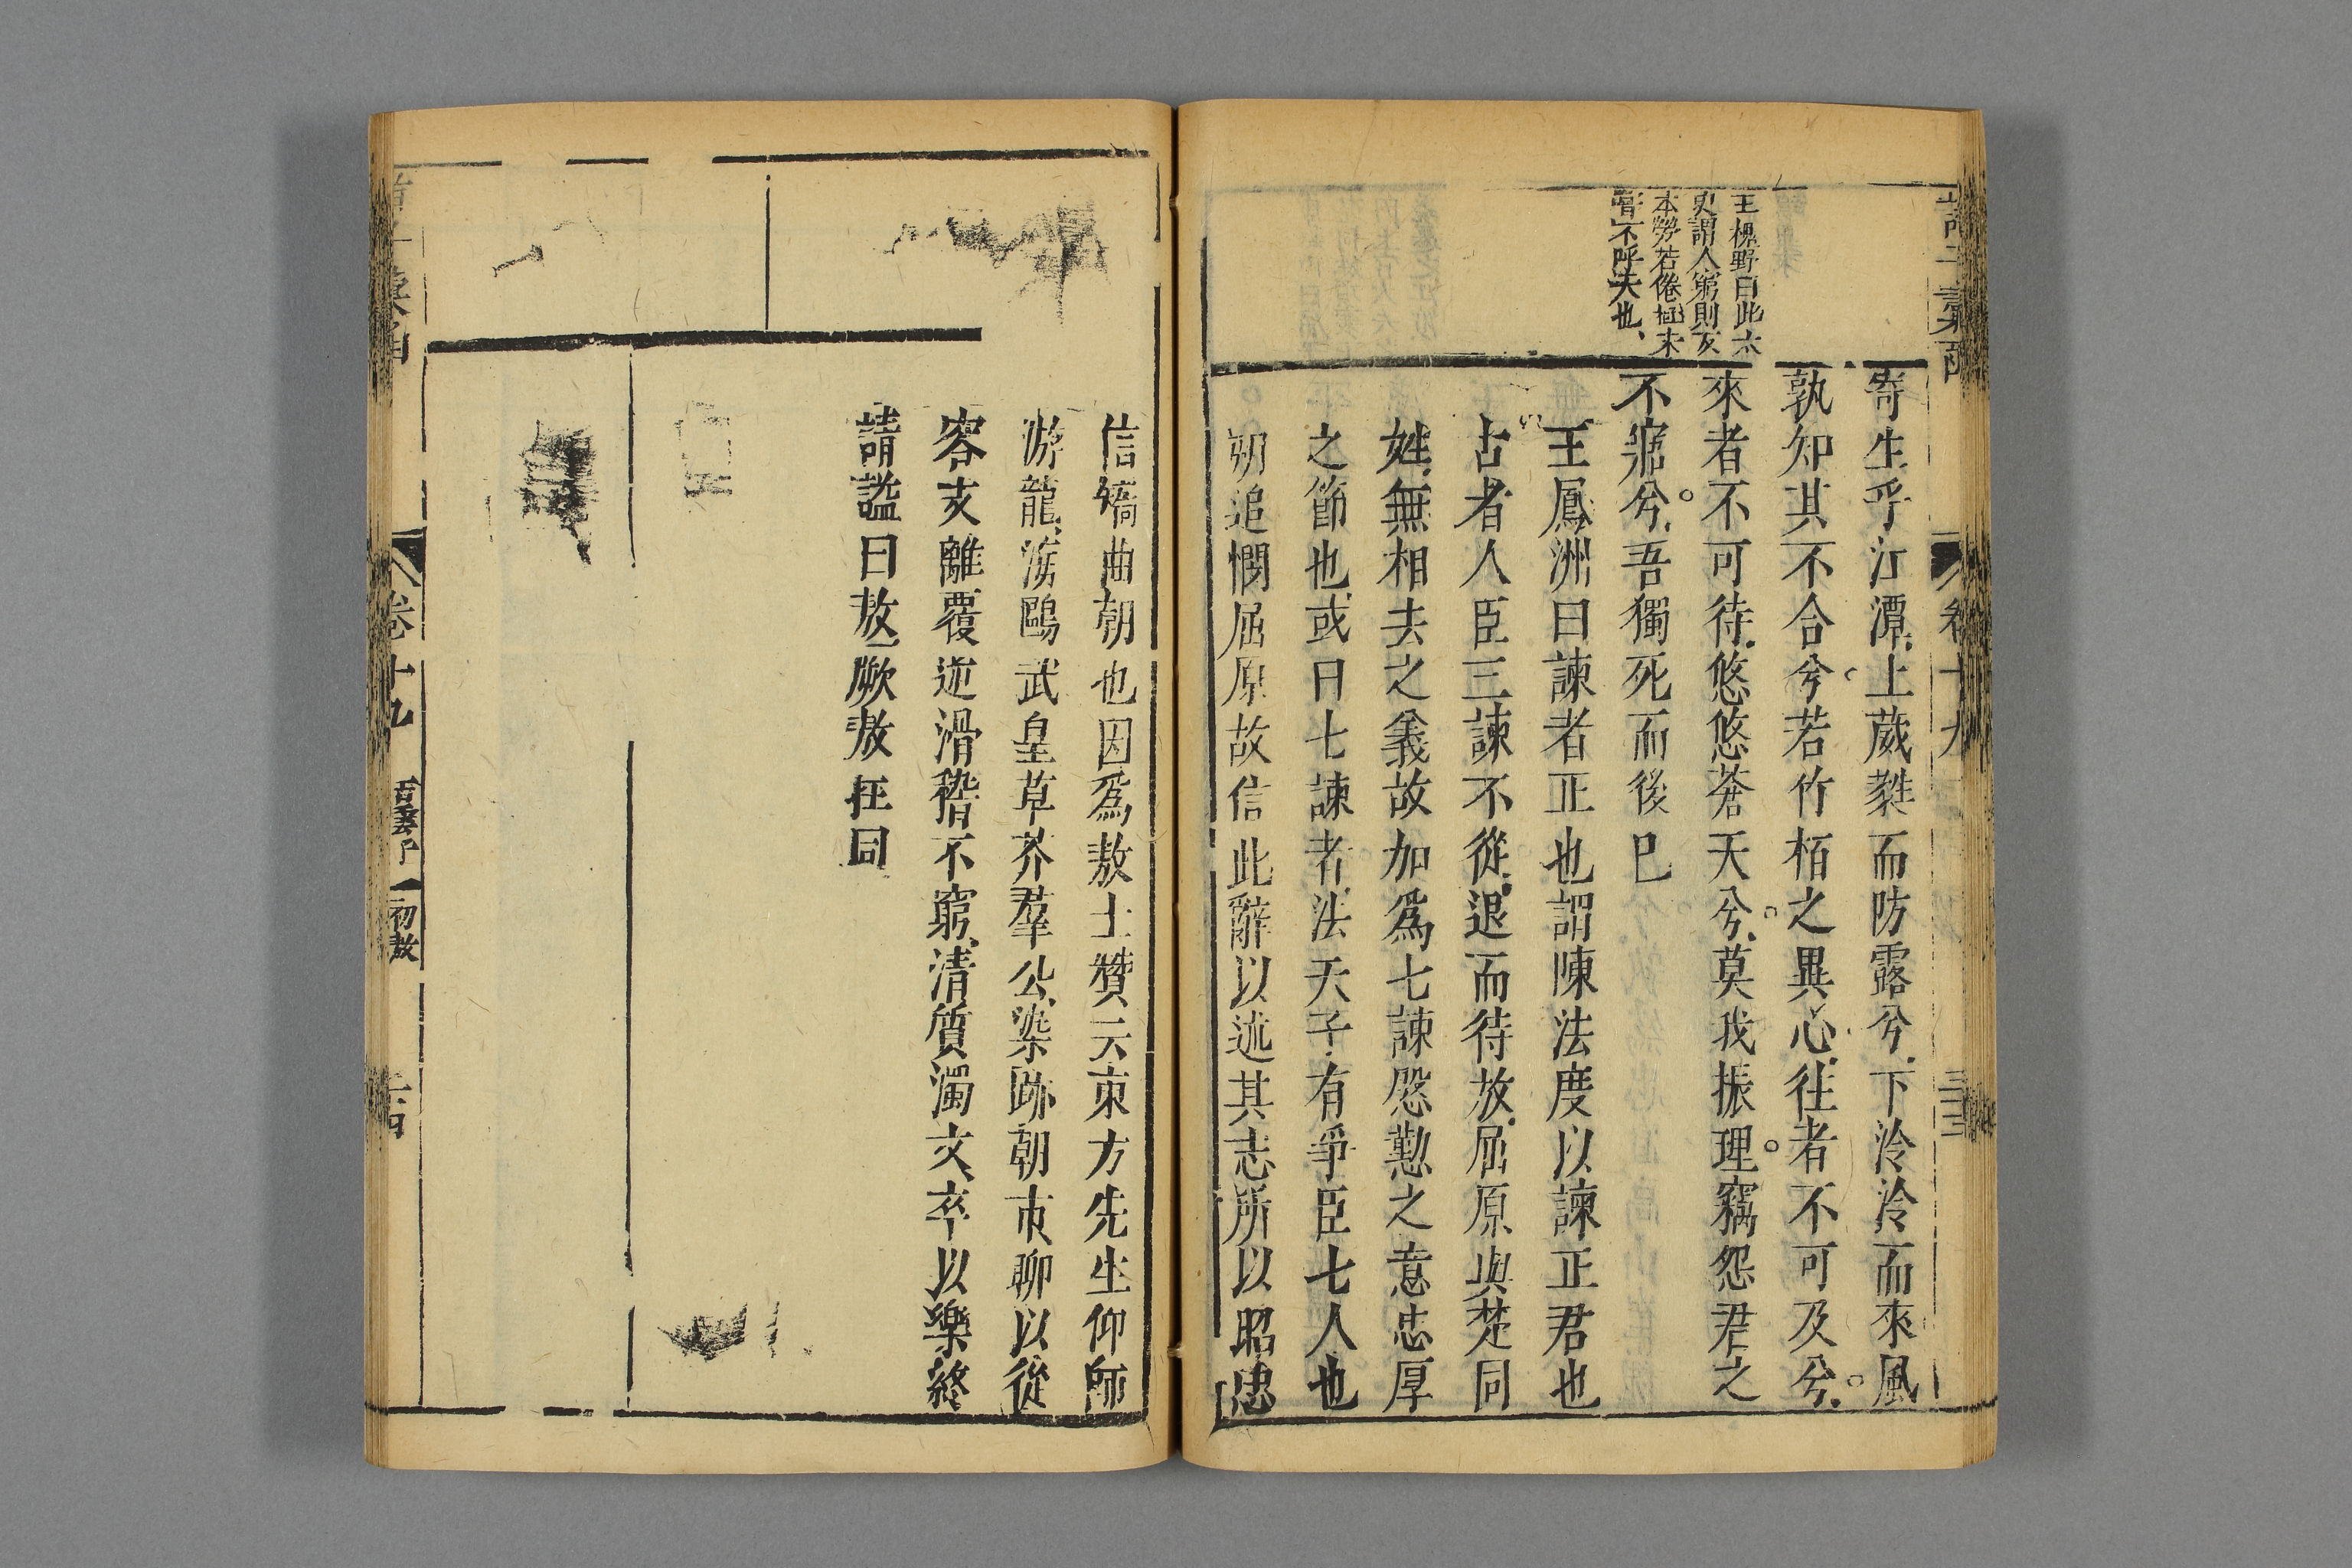 王槐野曰此太
史謂人窮則反
本勞若倦極未
嘗不呼夫也
寄生乎江潭上葳蕤而防露兮下泠泠而來風
孰知其不合兮若竹栢之異心往者不可及兮
來者不可待悠悠蒼天兮莫我振理竊怨君之
不寤兮吾獨死而後已
王鳳洲曰諫者正也謂陳法度以諫正君也
古者人臣三諫不從退而待放屈原與楚同
姓無相去之義故加爲七諫慇懃之意忠厚
之節也或曰七諫者法天子有爭臣七人也
朔追憫屈原故信此辭以述其志所以昭忠
信矯曲朝也因爲敖士贊云東方先生仰師
游龍㳺鷗武皇草芥羣公染跡朝市聊以從
容支離覆逆滑稽不窮清質濁文卒以樂終
請謚曰敖厥敖狂同
卷十九